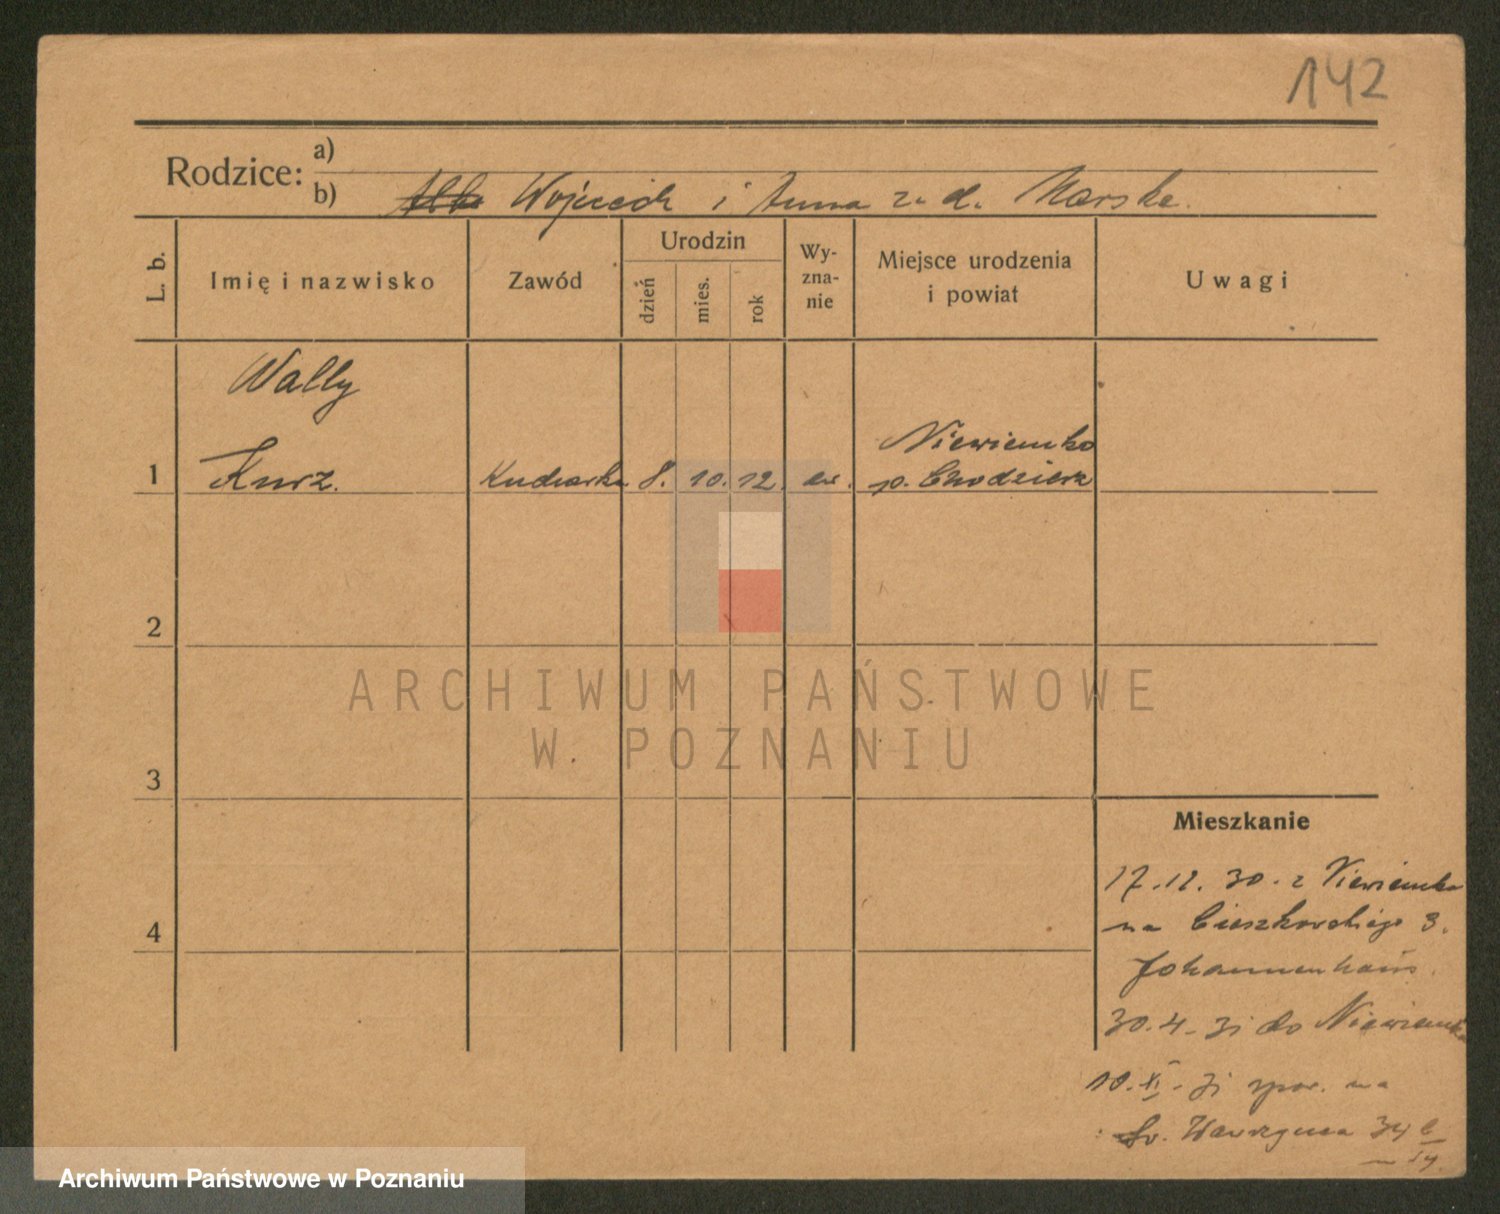 142
Rodzice: a)
b) Wojciech i Anna z d. Marske.
L. b.
Imię i nazwisko
Zawód
Urodzin
dzień
mies.
rok
Wy-
zna-
nie
Miejsce urodzenia
i powiat
Uwagi
Wally
1 Kurz. Kucharka 8. 10. 12. ew.
Niewiemko
p. Chodzież
2
3
4
ARCHIWUM PAŃSTWOWE
W POZNANIU
Mieszkanie
17.12.30. z Niewiemka
na Cieszkowskiego 3.
Johannenhaus.
30.4.31 do Niewiemka
10.XI.31 spow. na
Św. Wawrzyńca 34
Archiwum Państwowe w Poznaniu